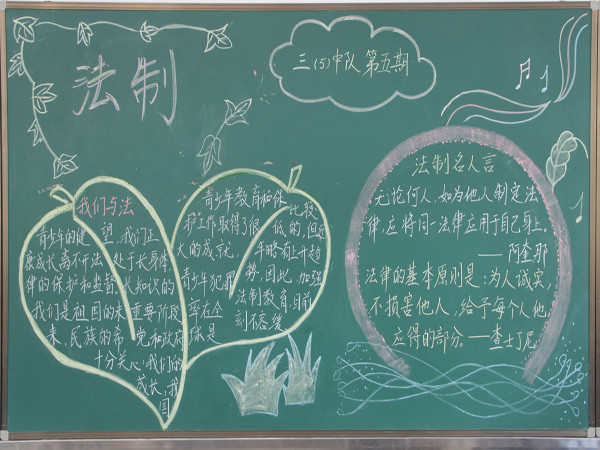 法制
三(5)中队第五期
我们与法
青少年的健
康成长离不开法
律的保护和监督
我们是祖国的未
来,民族的希
望,我们正
处于长身体
长知识的
重要阶段
党和政府
十分关心我们的
成长,我
国
青少年教育和保
护工作取得了很
大的成就,
青少年犯罪
率在全
球是
比较
低的,但近
年略有上升趋
势,因此,加强
法制教育目前
刻不容缓
法制名人言
无论何人,如为他人制定法
律,应将同一法律应用于自己身上。
——阿奎那
法律的基本原则是:为人诚实,
不损害他人,给予每个人他
应得的部分。——查士丁尼